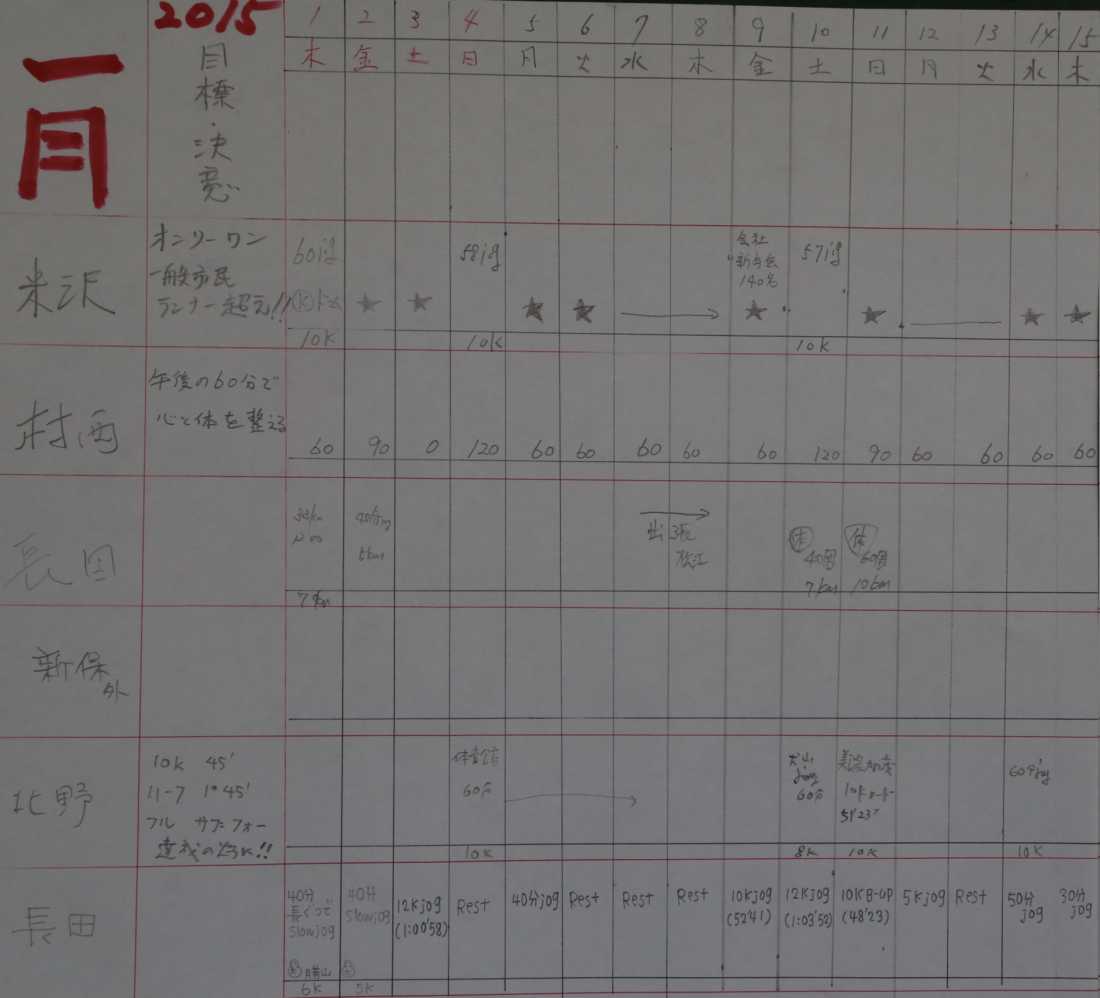 2015
一月
目標・決意
1 2 3 4 5 6 7 8 9 10 11 12 13 14 15
木 金 土 日 月 火 水 木 金 土 日 月 火 水 木
米沢
オンリーワン
一般市民
ランナー超え!!
60jg
★ ★
58jg
★ ★
会社
140名
★
57jg
★
★ ★
10K 10K 10K
村西
午後の60分で
心と体を整える
60 90 0 120 60 60 60 60 60 120 90 60 60 60 60
長田
7km
出張
松江
休
40周
7km
休
60周
10km
新保
外
北野
10K 45'
ハーフ 1°45'
フル サブフォー
達成の為に!!
体育館
60分
犬山
jog
60分
51'23"
10K 8K 10K 10K
長田
40分
長ぐつで
slowjog
6K
40分
slowjog
5K
12Kjog
(1:00'58)
Rest
40分jog
Rest
Rest
Rest
10Kjog
(52'41)
12Kjog
(1:03'52)
10KB-up
(48'23)
5Kjog
Rest
50分
jog
30分
jog